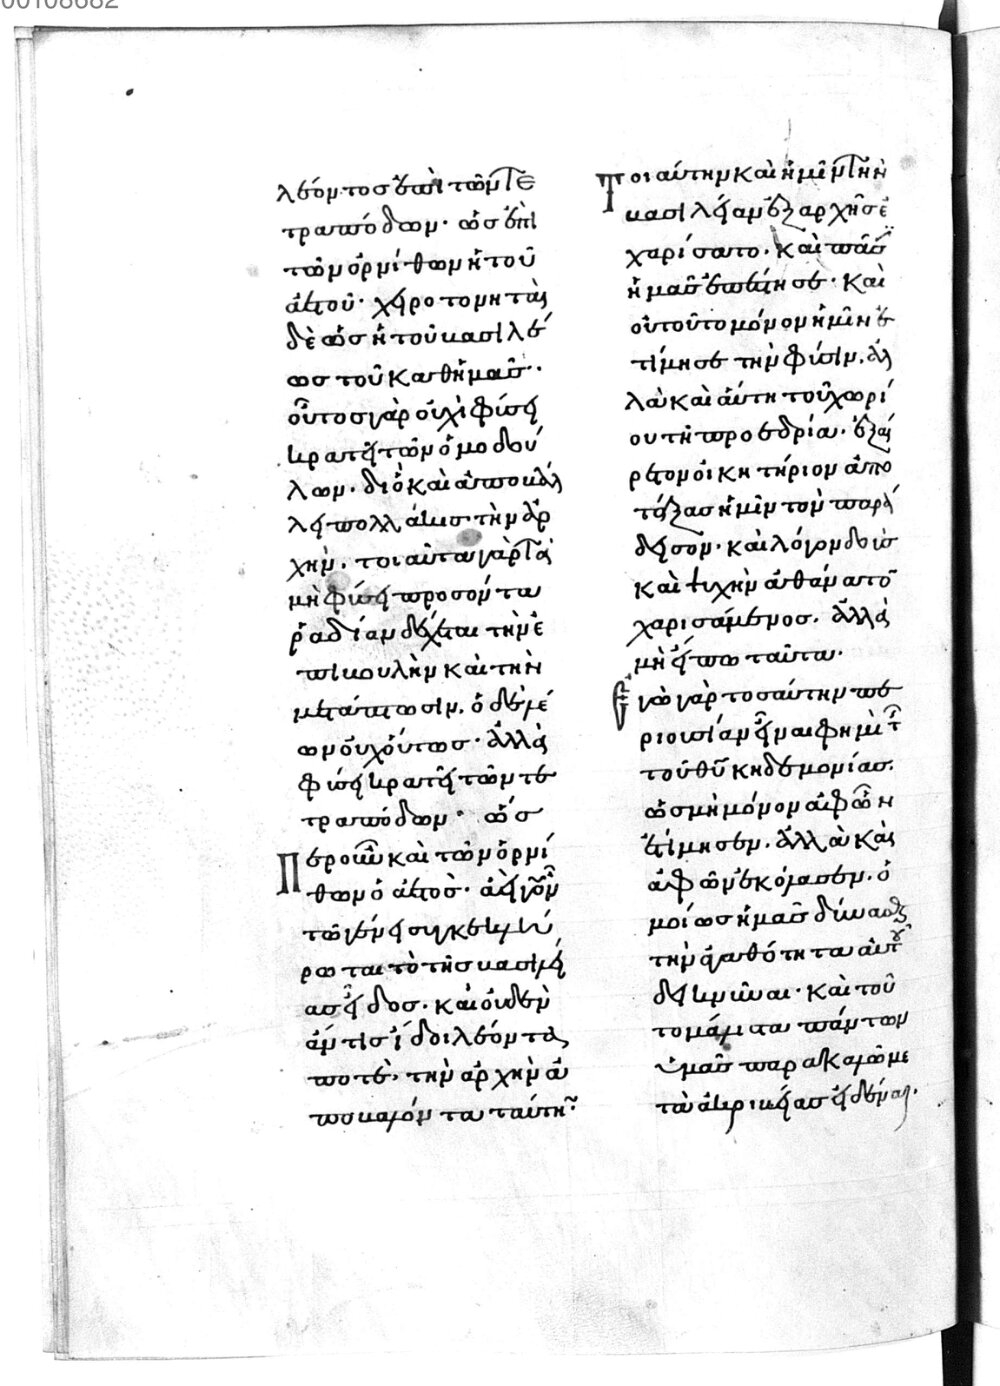 00108682
λέοντος ἐπὶ τῶν τε
τραπόδων· ὡς ἐπὶ
τῶν ὀρνίθων ἡ τοῦ
ἀετοῦ· χειροτονητὰς
δὲ ὡς ἡ τοῦ βασιλέ
ως τοῦ καθ ἡμᾶς·
οὗτος γὰρ οὐχὶ φύσει
κρατεῖ τῶν ὁμοδού
λων. διὸ καὶ ἀποβάλ
λει πολλάκις τὴν ἀρ
χήν. τοιαῦτα γὰρ τὰ
μὴ φύσει προσόντα
ῥαδίαν δέχεται τὴν ἐ
πιβουλὴν καὶ τὴν
μετάπτωσιν. ὁ δὲ λέ
ων οὐχ οὕτως· ἀλλὰ
φύσει κρατεῖ τῶν τε
τραπόδων· ὡς
περ οὖν καὶ τῶν ὀρνί
θων ὁ ἀετὸς· ἀεὶ γοῦν
τῶ γένει συγκεκλή
ρωται τὸ τῆς βασιλεί
ας εἶδος. καὶ οὐδὲν
ἄν τις ἴδοι λέοντά
ποτε, τὴν ἀρχὴν ἀ
ποβαλόντα ταύτην·
Τοιαύτην καὶ ἡμῖν τὴν
βασιλείαν ἐξ ἀρχῆς ἐ
χαρίσατο. καὶ πᾶσιν
ἡμᾶς ἐπέστησε· καὶ
οὐ τοῦτο μόνον ἡμῖν ἐ
τίμησε τὴν φύσιν. ἀλ
λὰ καὶ αὐτῆ τοῦ χωρί
ου τῆ προεδρία. ἐξαί
ρετον οἰκητήριον ἀπο
τάξας ἡμῖν τὸν παρά
δεισον· καὶ λόγον δοὺς
καὶ ψυχὴν ἀθάνατον
χαρισάμενος. ἀλλὰ
μὴ εἴπω ταῦτα·
Ἐγὼ γὰρ τοσαύτην πε
ριουσίαν εἶναι φημὶ τῆς
τοῦ θῦ κηδεμονίας.
ὡς μὴ μόνον ἀφ ὧν
ἐτίμησεν. ἀλλὰ καὶ
ἀφ ὧν ἐκόλασεν. ὁ
μοίως ἡμᾶς δύνασθαι
τὴν ἀγαθότητα αὐτοῦ
δεικνύναι· καὶ τοῦ
το μάλιστα πάντων
ὑμᾶς παρακαλῶ με
τὰ ἀκριβείας εἰδέναι.